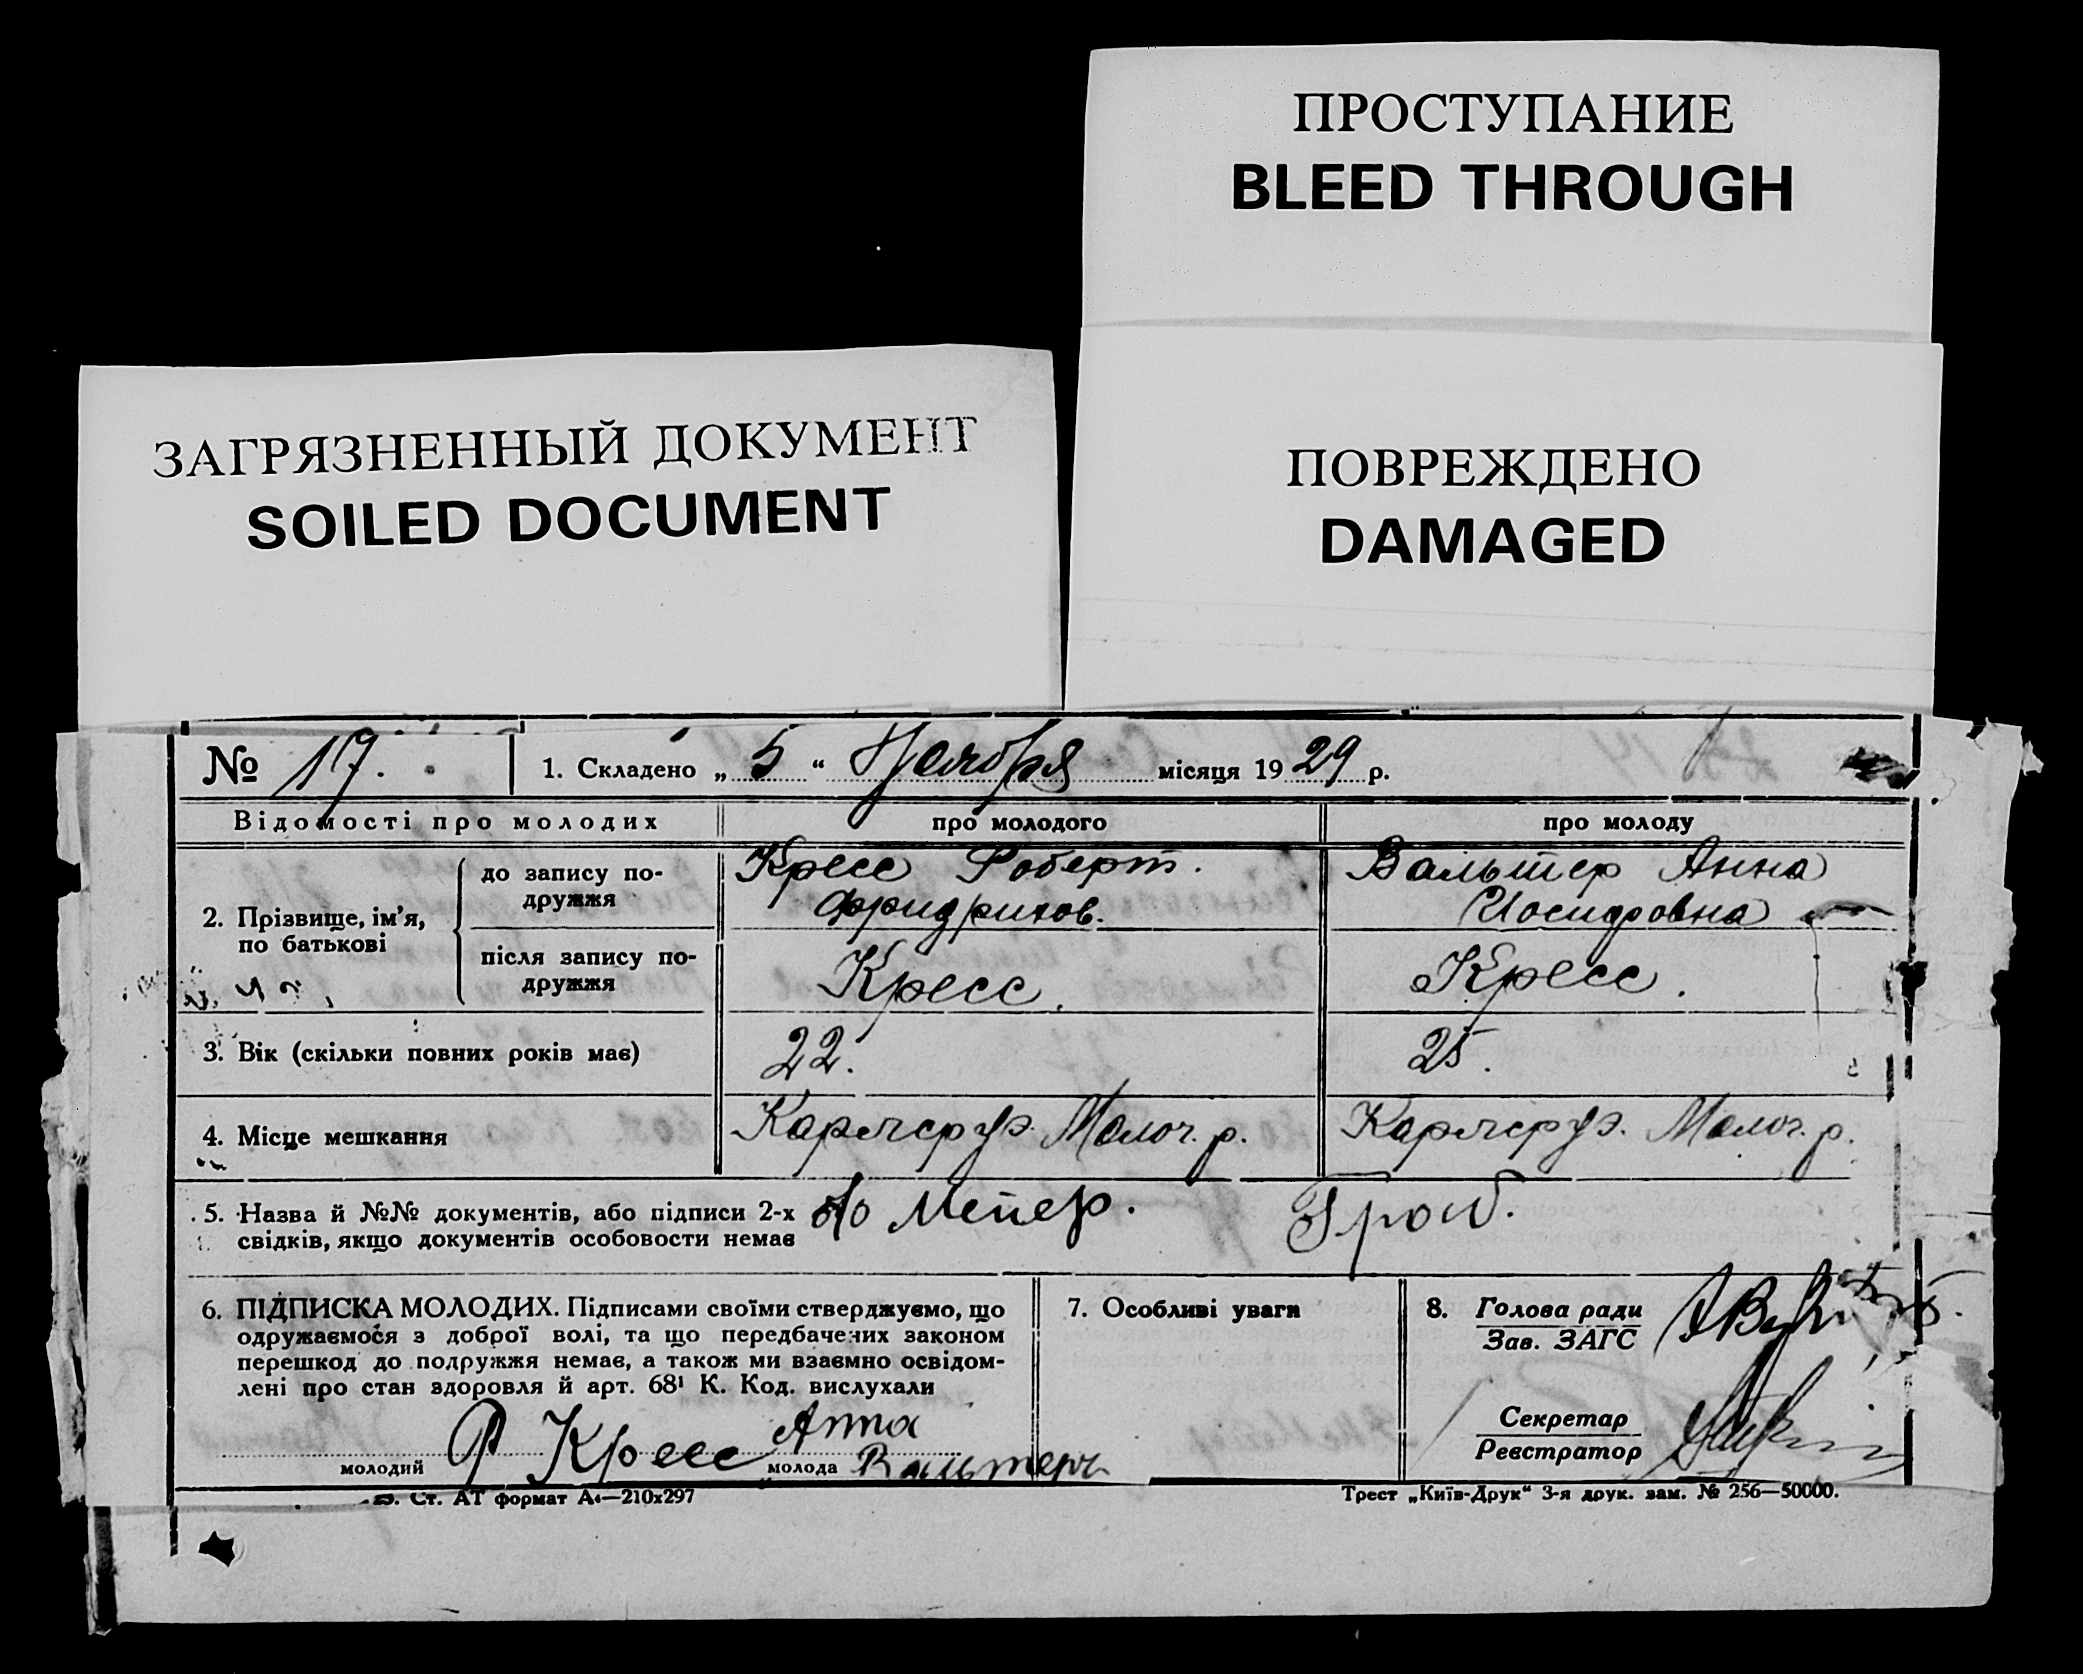 ПРОСТУПАНИЕ
BLEED THROUGH
ЗАГРЯЗНЕННЫЙ ДОКУМЕНТ
SOILED DOCUMENT
ПОВРЕЖДЕНО
DAMAGED
№ 17. 1. Складено „ 5 “ Ноября місяця 1929 р.
Відомості про молодих про молодого про молоду
2. Прізвище, ім’я, по батькові
до запису подружжя
Кресс Роберт.
Фридрихов.
Вальтер Анна
Иосифовна
після запису подружжя
Кресс.
Кресс.
3. Вік (скільки повних років має) 22. 25.
4. Місце мешкання Карлсруэ. Молоч. р. Карлсруэ. Молоч. р.
5. Назва й №№ документів, або підписи 2-х
свідків, якщо документів особовости немає
Мейер.
6. ПІДПИСКА МОЛОДИХ. Підписами своїми стверджуємо, що
одружаємося з доброї волі, та що передбачених законом
перешкод до подружжя немає, а також ми взаємно освідом-
лені про стан здоровля й арт. 68¹ К. Код. вислухали
молодий Р Кресс молода Anna
Вальтер
7. Особливі уваги
8. Голова ради
Зав. ЗАГС
Секретар
Реєстратор
Ст. АТ формат А4—210х297
Трест „Київ-Друк“ 3-я друк. зам. № 256—50000.